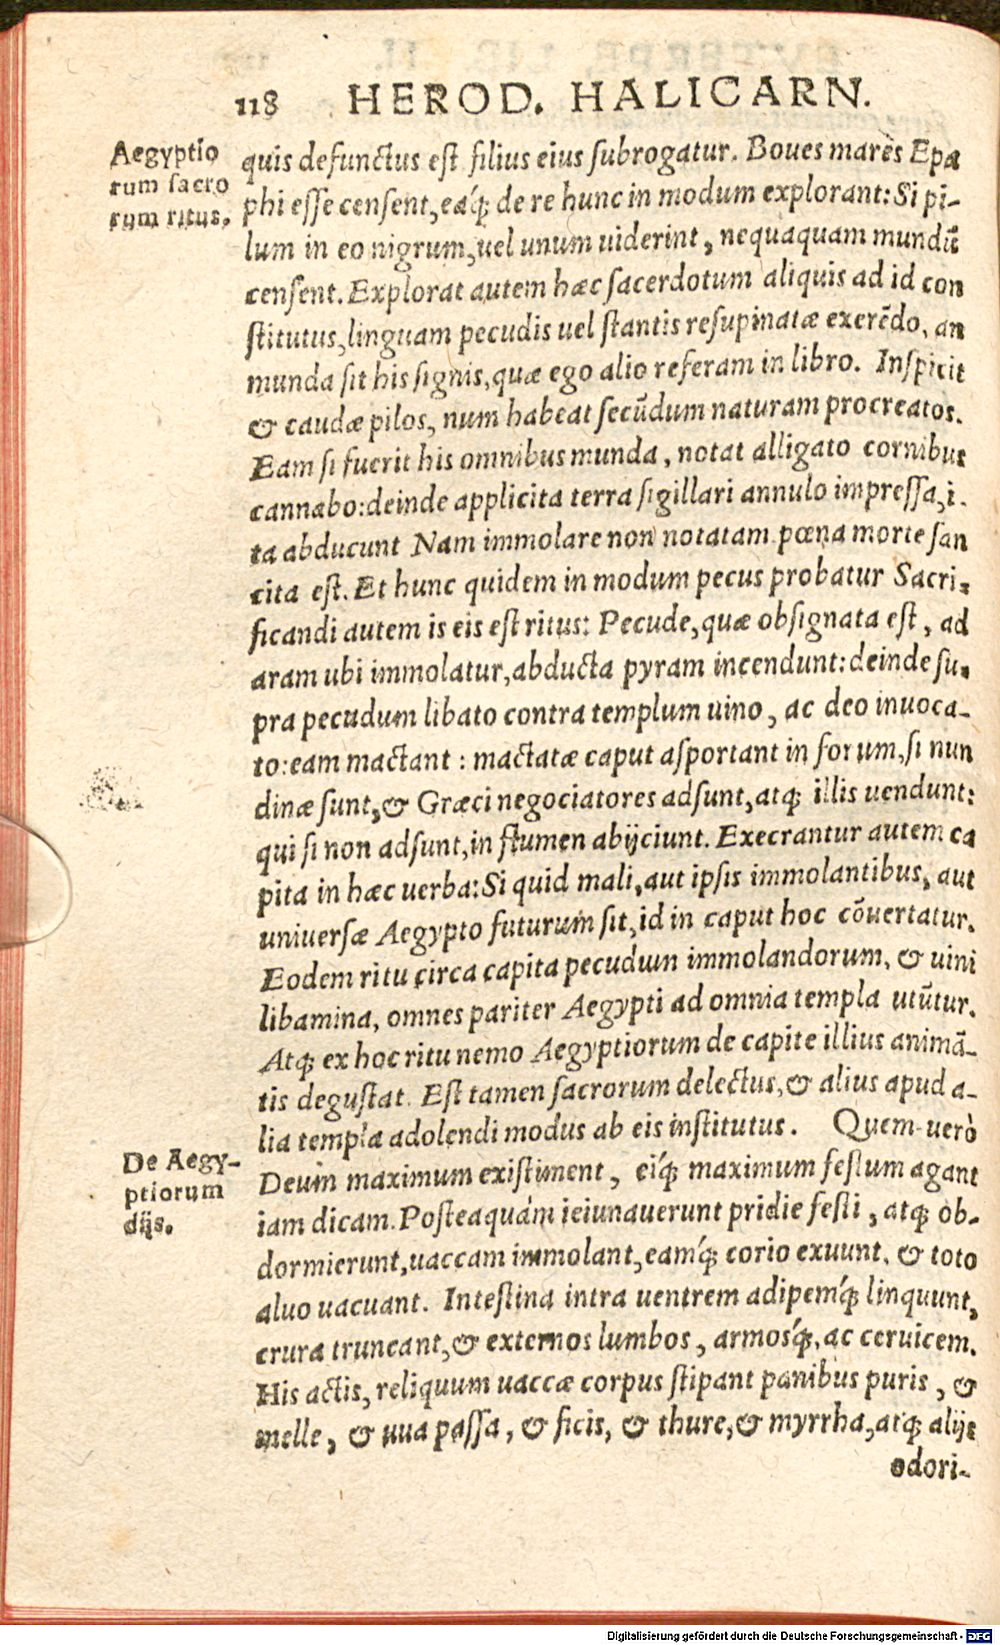 118 HEROD. HALICARN.
Aegyptio
rum sacro
rum ritus.
quis defunctus est filius eius subrogatur. Boues mares Epa
phi esse censent, eáq; de re hunc in modum explorant: Si pi-
lum in eo nigrum, uel unum uiderint, nequaquam mundũ
censent. Explorat autem hæc sacerdotum aliquis ad id con
stitutus, linguam pecudis uel stantis resupinatæ exerẽdo, an
munda sit his signis, quæ ego alio referam in libro. Inspicit
& caudæ pilos, num habeat secũdum naturam procreatos.
Eam si fuerit his omnibus munda, notat alligato cornibus
cannabo: deinde applicita terra sigillari annulo impressa, i.
ta abducunt Nam immolare non notatam pœna morte san
cita est. Et hunc quidem in modum pecus probatur Sacri-
ficandi autem is eis est ritus: Pecude, quæ obsignata est, ad
aram ubi immolatur, abducta pyram incendunt: deinde su-
pra pecudum libato contra templum uino, ac deo inuoca-
to: eam mactant: mactatæ caput asportant in forum, si nun
dinæ sunt, & Græci negociatores adsunt, atq; illis uendunt:
qui si non adsunt, in flumen abijciunt. Execrantur autem ca
pita in hæc uerba: Si quid mali, aut ipsis immolantibus, aut
uniuersæ Aegypto futurum sit, id in caput hoc cõuertatur.
Eodem ritu circa capita pecudum immolandorum, & uini
libamina, omnes pariter Aegypti ad omnia templa utũtur.
Atq; ex hoc ritu nemo Aegyptiorum de capite illius animã-
tis degustat. Est tamen sacrorum delectus, & alius apud a-
lia templa adolendi modus ab eis institutus. Quem uerò
De Aegy-
ptiorum
dijs.
Deum maximum existiment, eíq; maximum festum agant
iam dicam. Posteaquám ieiunauerunt pridie festi, atq; ob-
dormierunt, uaccam immolant, eamq́; corio exuunt, & toto
aluo uacuant. Intestina intra uentrem adipemq́; linquunt,
crura truncant, & externos lumbos, armosq́;, ac ceruicem.
His actis, reliquum uaccæ corpus stipant panibus puris, &
melle, & uua passa, & ficis, & thure, & myrrha, atq; alijs
odori-
Digitalisierung gefördert durch die Deutsche Forschungsgemeinschaft - DFG